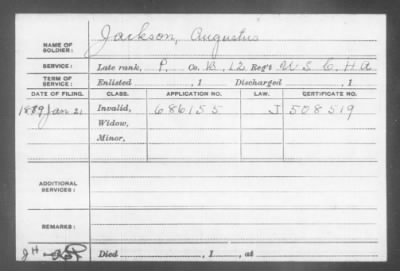 NAME OF SOLDIER: Jackson, Augustus
SERVICE: Late rank, P, Co. B, 12 Reg't U S C H A
TERM OF SERVICE: Enlisted , 1 Discharged , 1
DATE OF FILING. CLASS. APPLICATION NO. LAW. CERTIFICATE NO.
1889 Jan 21 Invalid, 686155 J 508519
Widow,
Minor,
ADDITIONAL SERVICES:
REMARKS:
Died , 1 , at